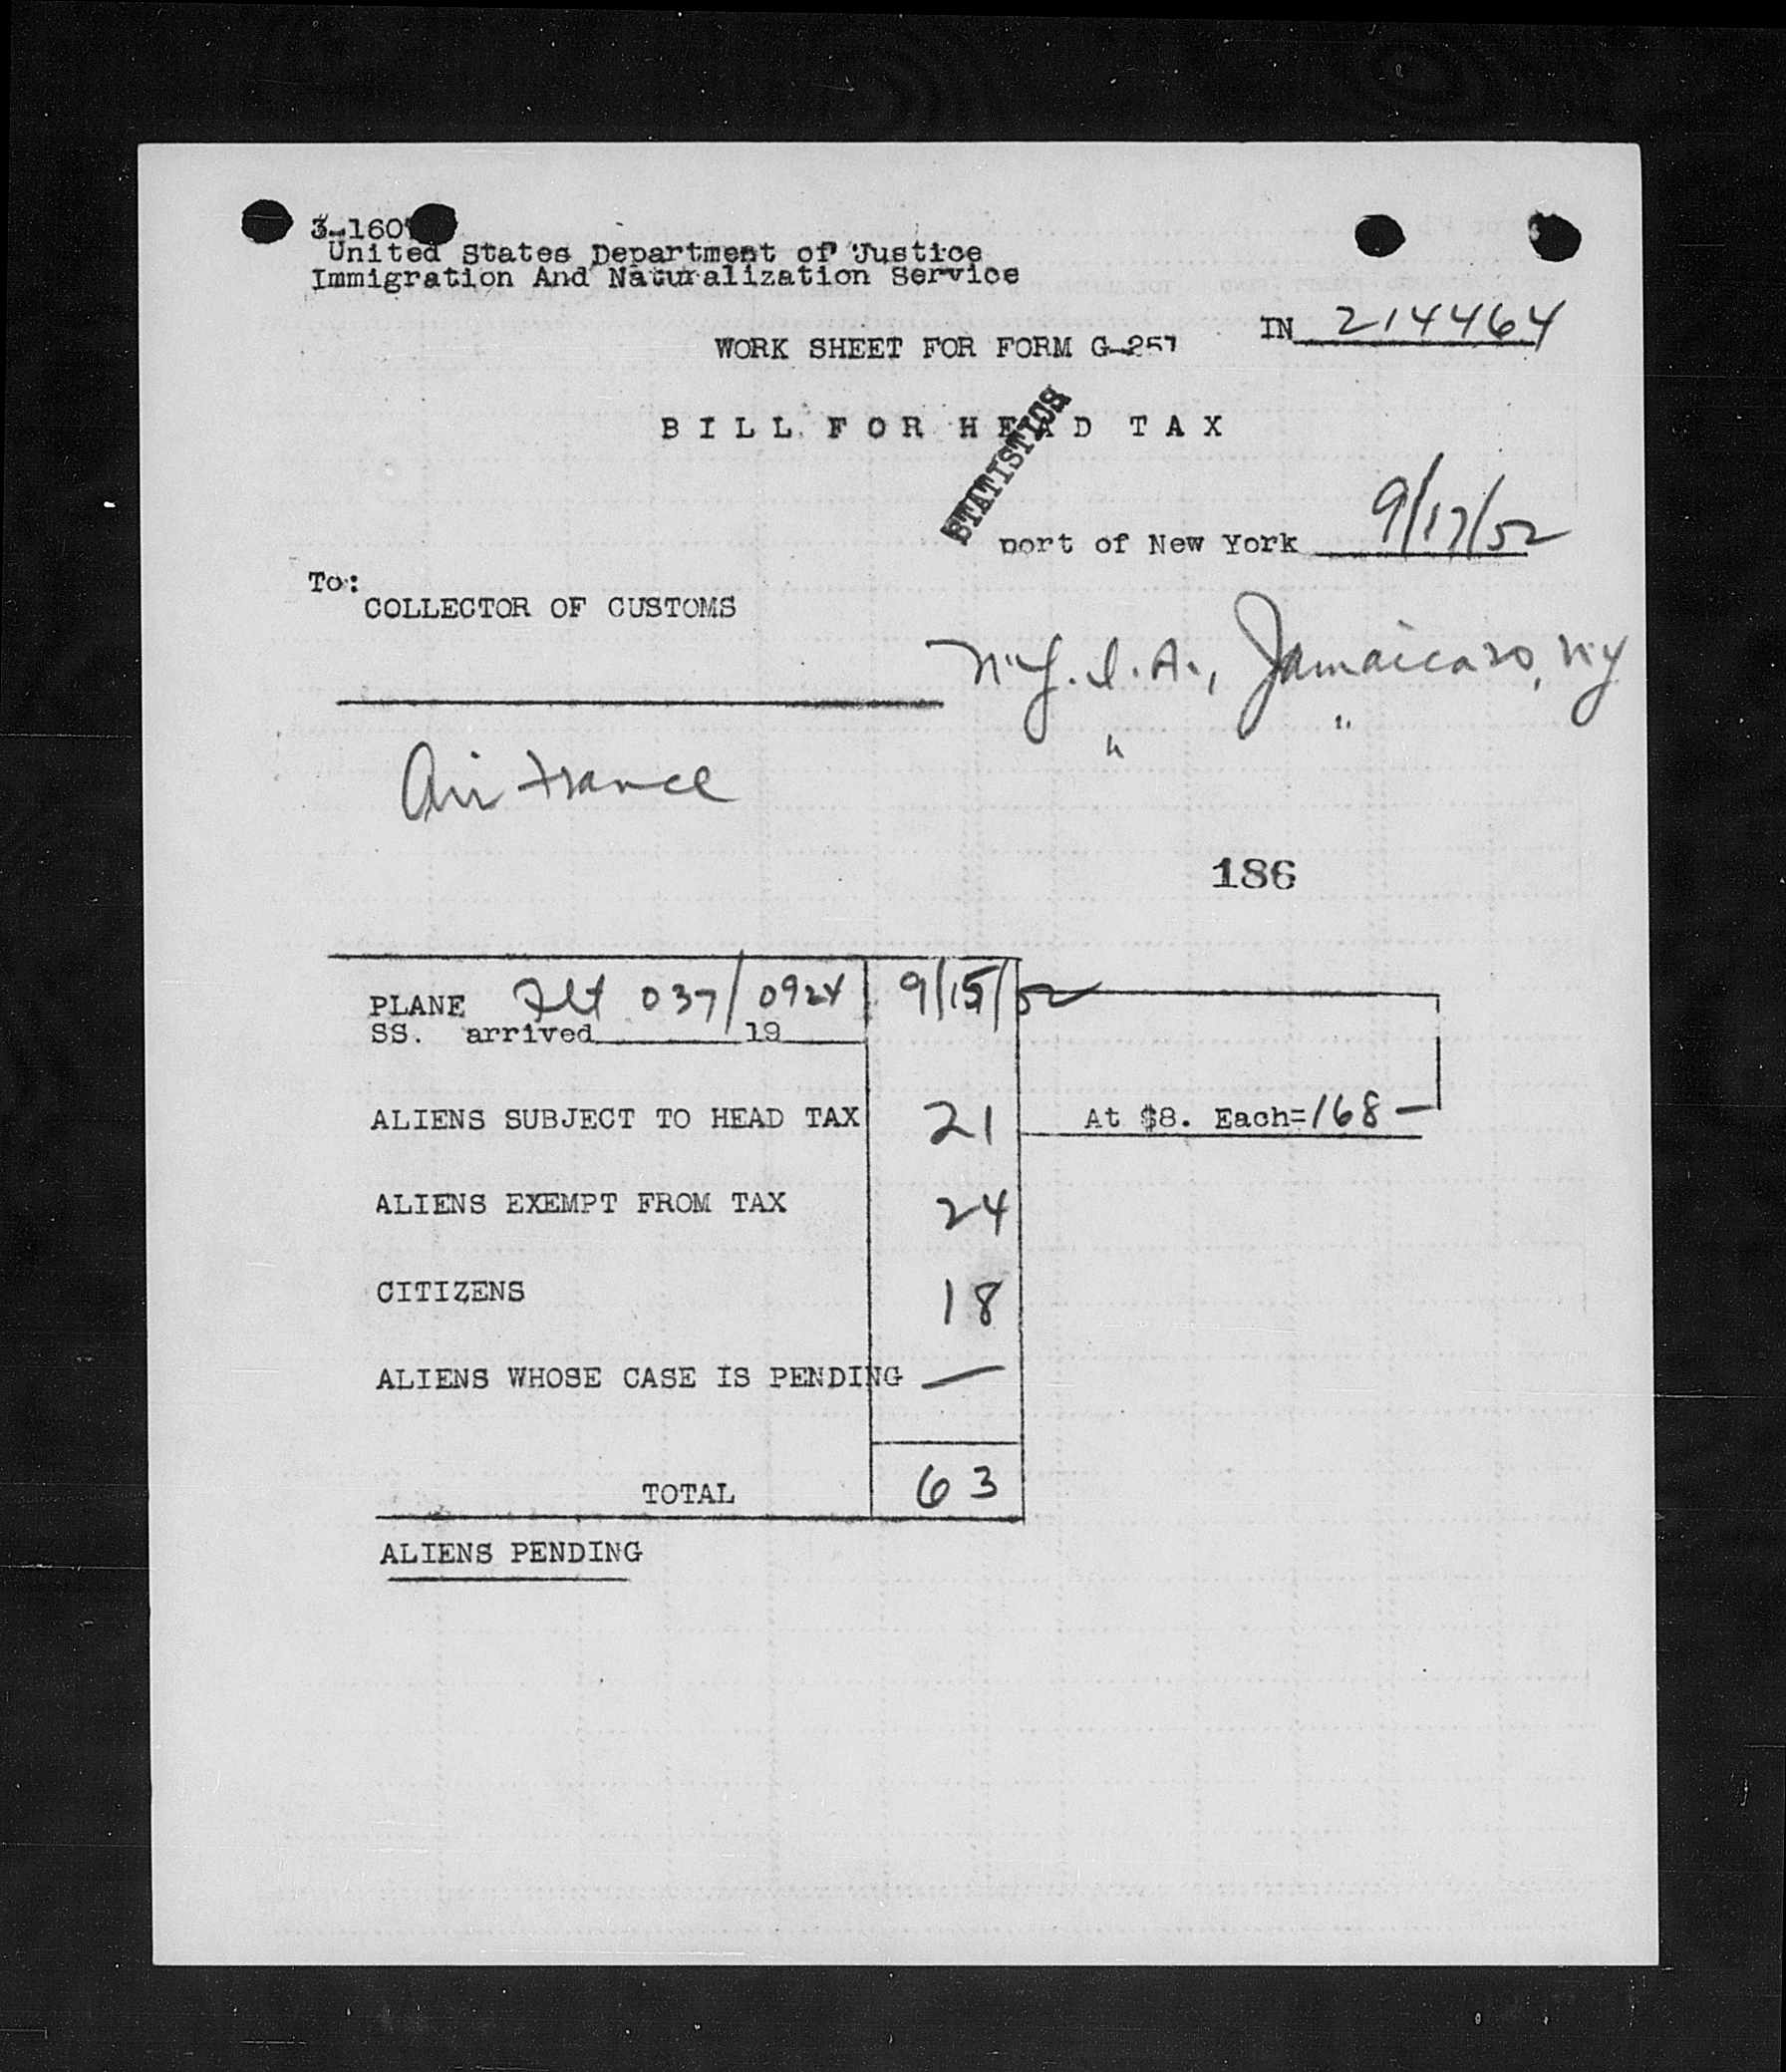 3-160
United States Department of Justice
Immigration And Naturalization Service
IN 214464
WORK SHEET FOR FORM G-257
BILL FOR HEAD TAX
STATISTICS
port of New York 9/17/52
To:
COLLECTOR OF CUSTOMS
N.Y.I.A., Jamaica 30, NY
" "
Air France
186
PLANE Flt 037/0924 9/15/52
SS. arrived 19
ALIENS SUBJECT TO HEAD TAX 21 At $8. Each=168—
ALIENS EXEMPT FROM TAX 24
CITIZENS 18
ALIENS WHOSE CASE IS PENDING —
TOTAL 63
ALIENS PENDING